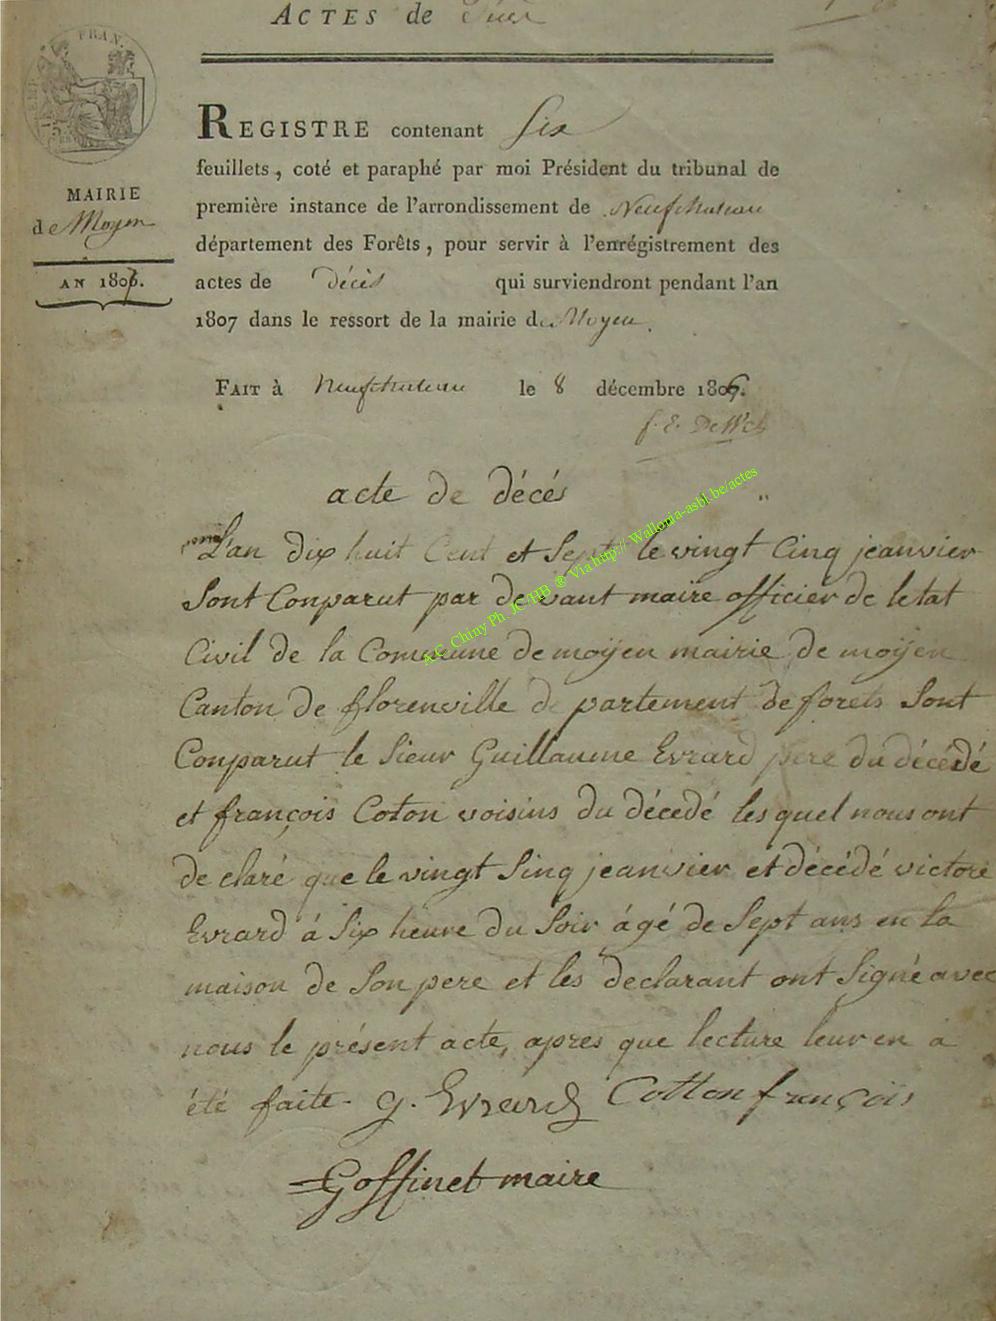 ACTES de Décès
FRAN.
MAIRIE
de Moyen
AN 1807.
REGISTRE contenant Six
feuillets, coté et paraphé par moi Président du tribunal de
première instance de l'arrondissement de Neufchateau
département des Forêts, pour servir à l'enrégistrement des
actes de Décès qui surviendront pendant l'an
1807 dans le ressort de la mairie de Moyen.
FAIT à Neufchateau le 8 décembre 1806.
acte de décés
L'an dix huit Cent et Sept le vingt Cinq jeanvier
Sont Conparut par devant maire officier de letat
Civil de la Commune de moÿen mairie de moÿen
Canton de florenville departement de forets Sont
Conparut le Sieur Guillaume Evrard pere du décédé
et françois Coton voisins du décedé les quel nous ont
de claré que le vingt Sinq jeanvier et décédé victore
Evrard á Six heure du Soir ágé de Sept ans en la
maison de Son pere et les declarant ont Signé avec
nous le présent acte, apres que lecture leur en á
été faite. g. Evrard Cotton françois
Goffinet maire
A.C. Chiny Ph. JC HB ® Via http:// Wallonia-asbl.be/actes